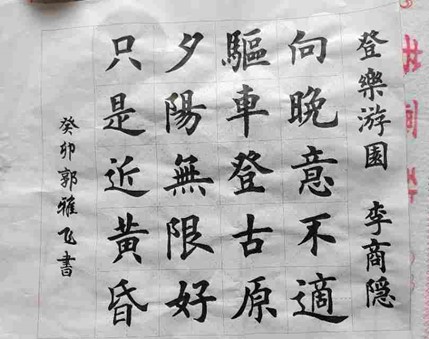 登樂游園 李商隐
向晚意不適
驅車登古原
夕陽無限好
只是近黃昏
癸卯郭雅飞書